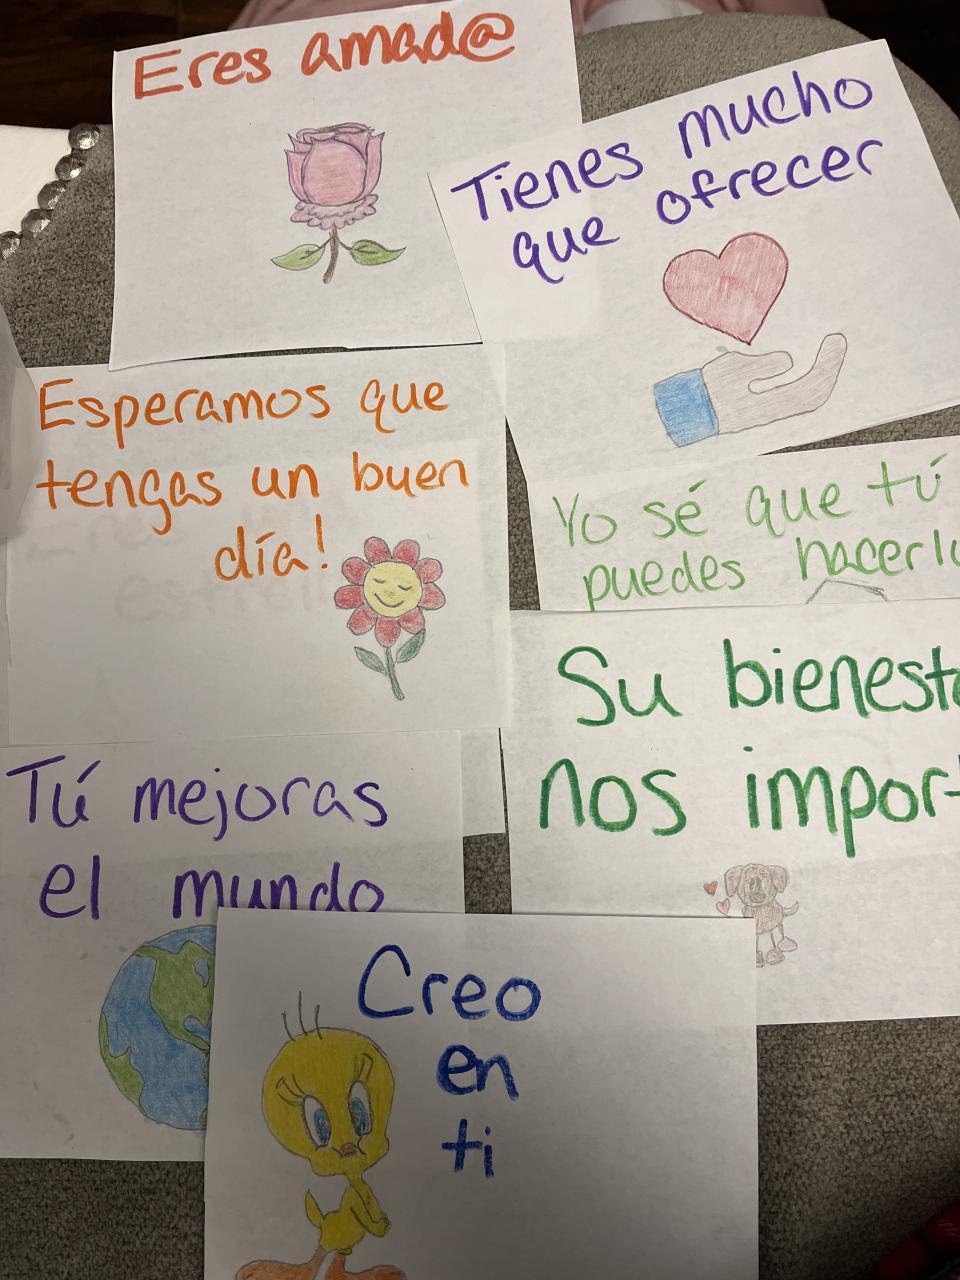 Eres amad@
Tienes mucho
que ofrecer
Esperamos que
tengas un buen
día!
Yo sé que tú
puedes
Su
nos
Tú mejoras
el mundo
Creo
en
ti